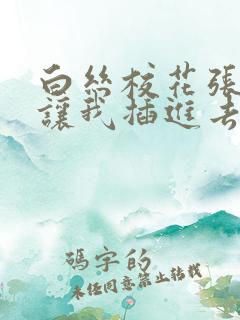 白絲校花張
讓我插進去
碼字的
未經同意禁止轉載